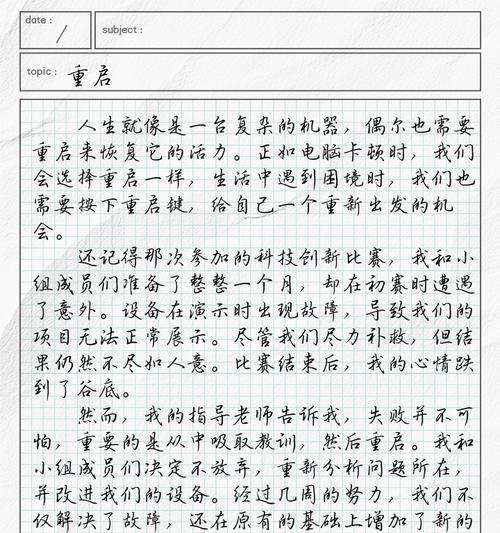 date :
subject :
topic : 重启
人生就像是一台复杂的机器，偶尔也需要
重启来恢复它的活力。正如电脑卡顿时，我们
会选择重启一样，生活中遇到困境时，我们也
需要按下重启键，给自己一个重新出发的机
会。
还记得那次参加的科技创新比赛，我和小
组成员们准备了整整一个月，却在初赛时遭遇
了意外。设备在演示时出现故障，导致我们的
项目无法正常展示。尽管我们尽力补救，但结
果仍然不尽如人意。比赛结束后，我的心情跌
到了谷底。
然而，我的指导老师告诉我，失败并不可
怕，重要的是从中吸取教训，然后重启。我和
小组成员们决定不放弃，重新分析问题所在，
并改进我们的设备。经过几周的努力，我们不
仅解决了故障，还在原有的基础上增加了新的